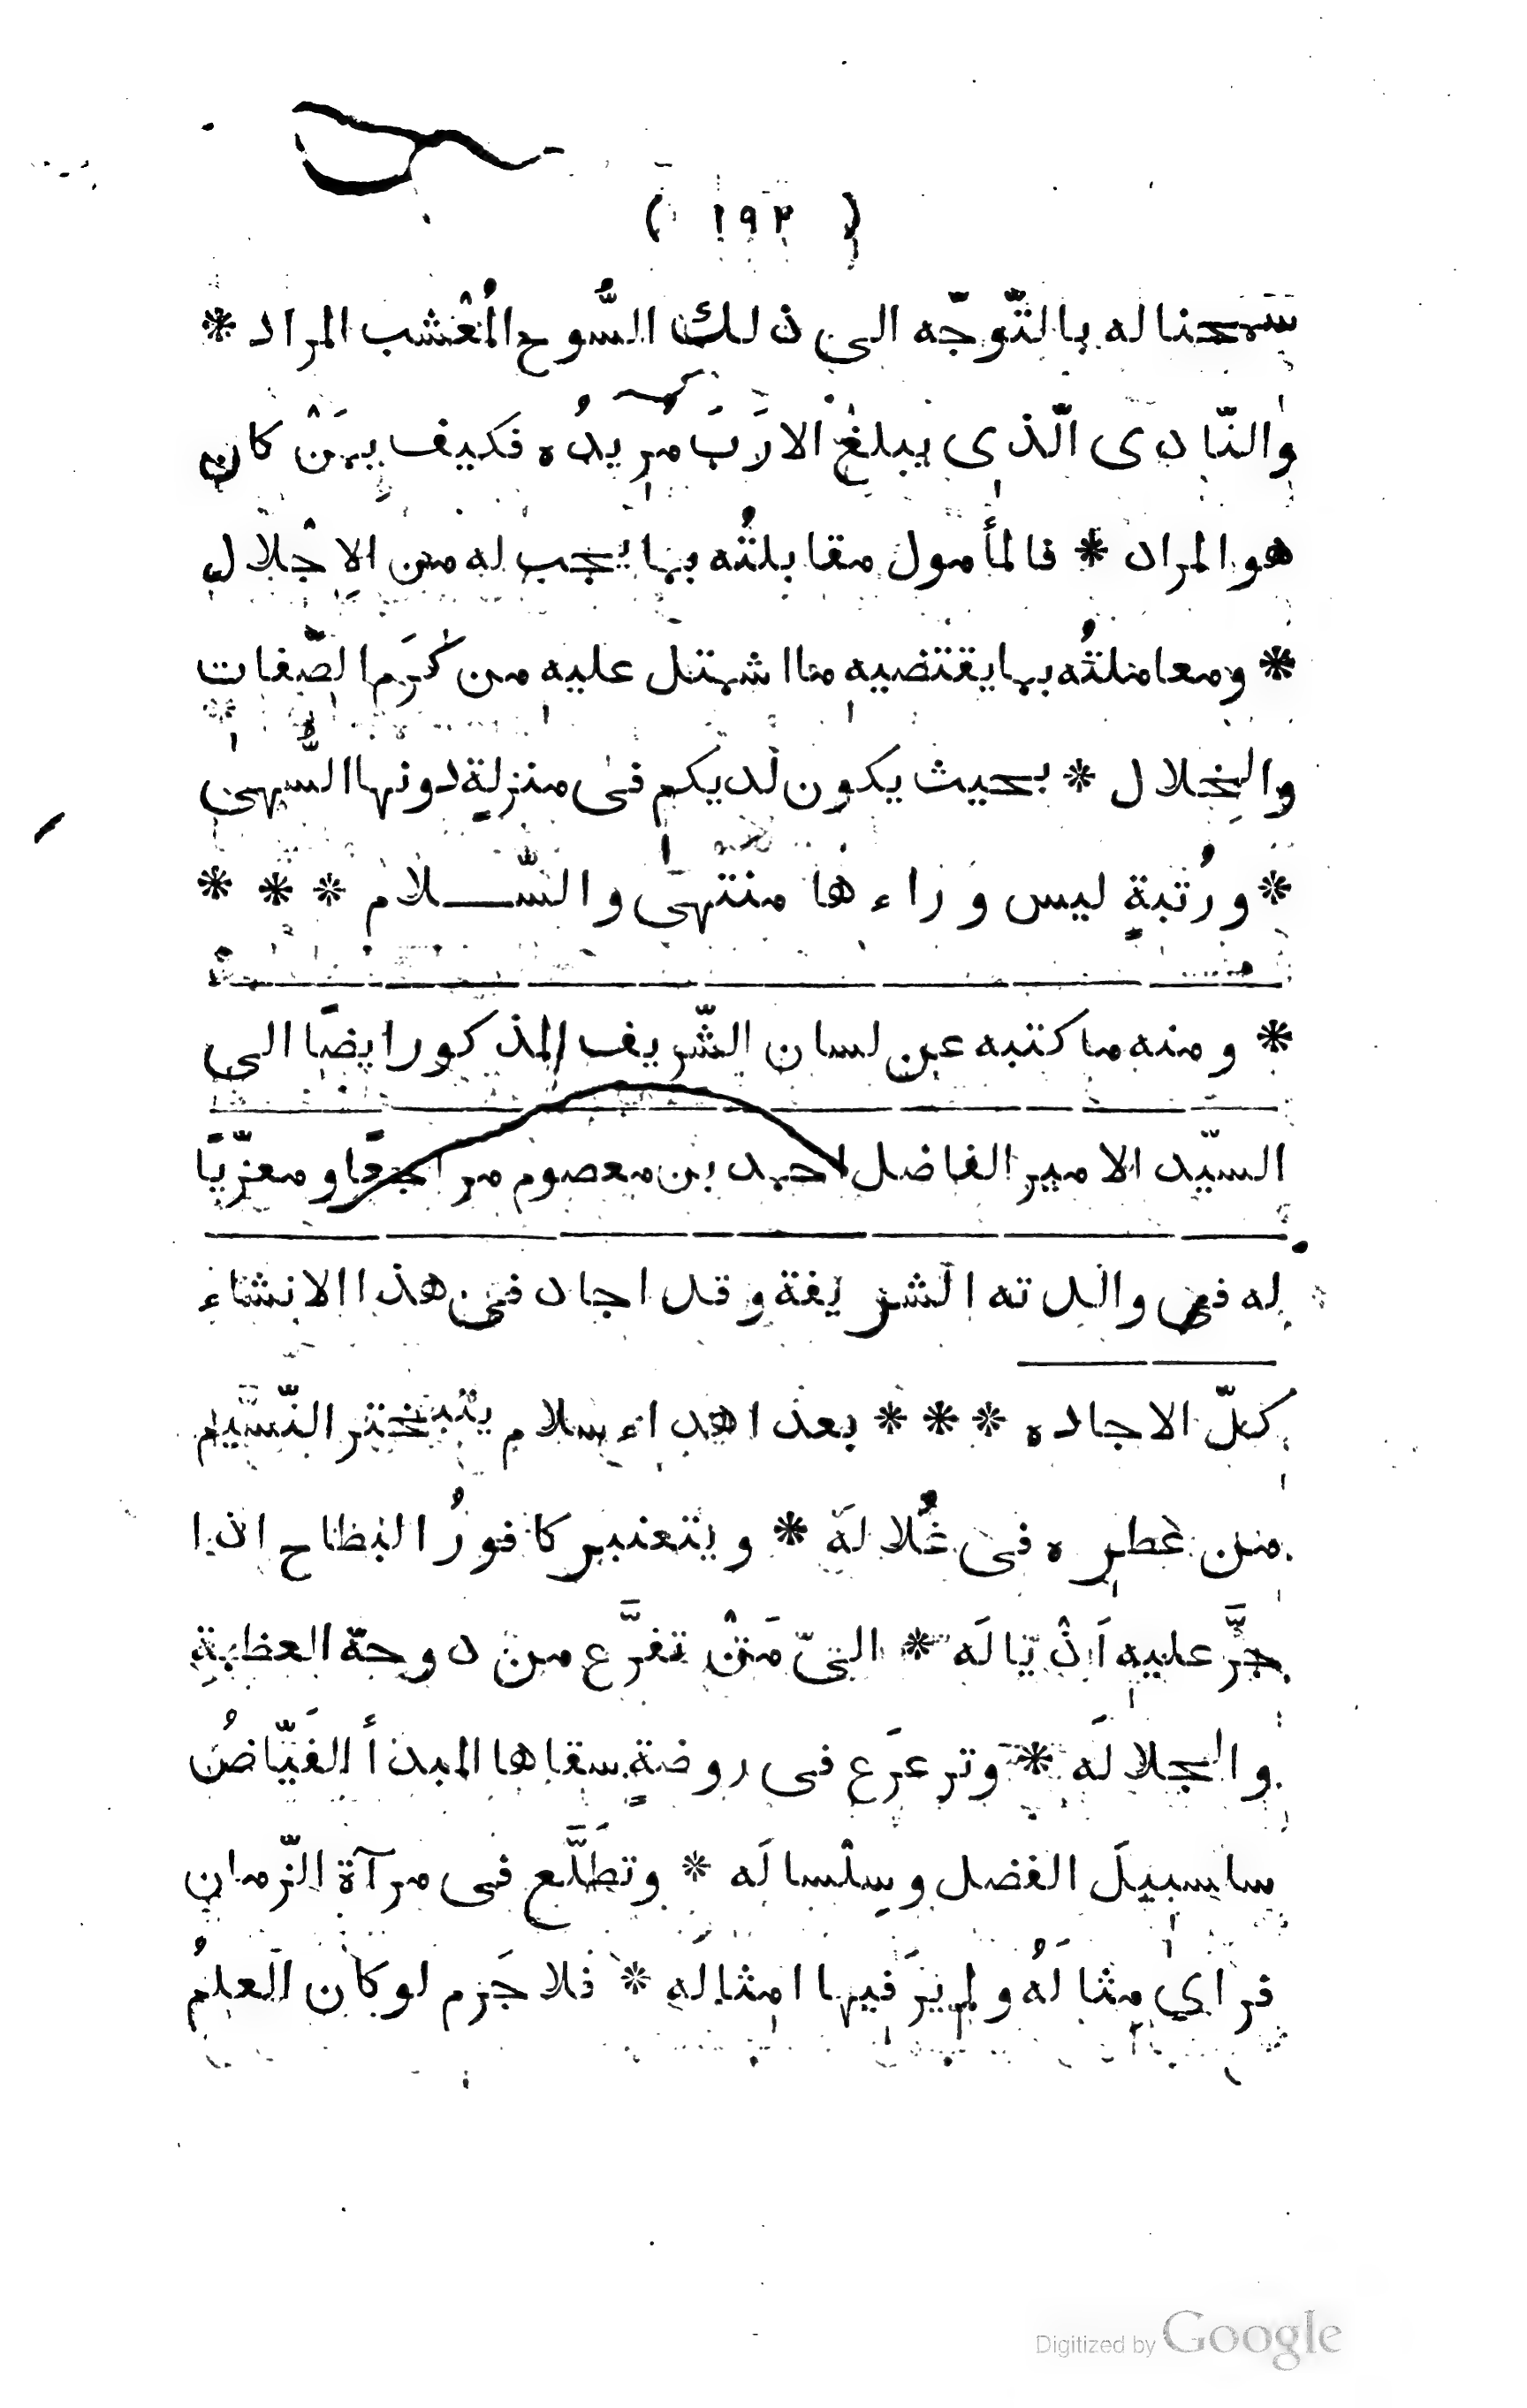 ( ١٩٢ )
سرحنا له بالتّوجّه الى ذلك السُّوح المُعْشب المراد *
والنّادى الّذى يبلغ الارَبَ مُريدُه فكيف بمَنْ كان
هو المراد * فالمأمول مقابلتُه بما يجب له من الاجْلال
* ومعاملتُه بما يقتضيه ما اشتمل عليه من كَرَم الصّفات
والخِلال * بحيث يكون لديكم فى منزلةٍ دونها السُّهى
* ورُتبةٍ ليس وراءها منتهى والسّلام * * *
* ومنه ما كتبه عن لسان الشّريف المذكور ايضًا الى
السيّد الامير الفاضل احمد بن معصوم مراجعًا ومعزّيًا
له فى والدته الشريفة وقد اجاد فى هذا الانشاء
كلّ الاجاده * * * بعد اهداء سلام يتبختر النّسيم
من عطره فى غُلالَه * ويتعنبر كافورُ البطاح اذا
جرَّ عليه اَذْيالَه * الى مَنْ تفرَّع من دوحة العظمةِ
والجلالَه * وترعرَع فى روضةٍ سقاها المبدأ الفَيّاضُ
سلسبيلَ الفضل وسِلْسالَه * وتطَلَّع فى مرآة الزّمان
فراى مِثالَهُ ولم يَرَ فيها امثالَه * فلا جَرم لو كان العلمُ
Digitized by Google